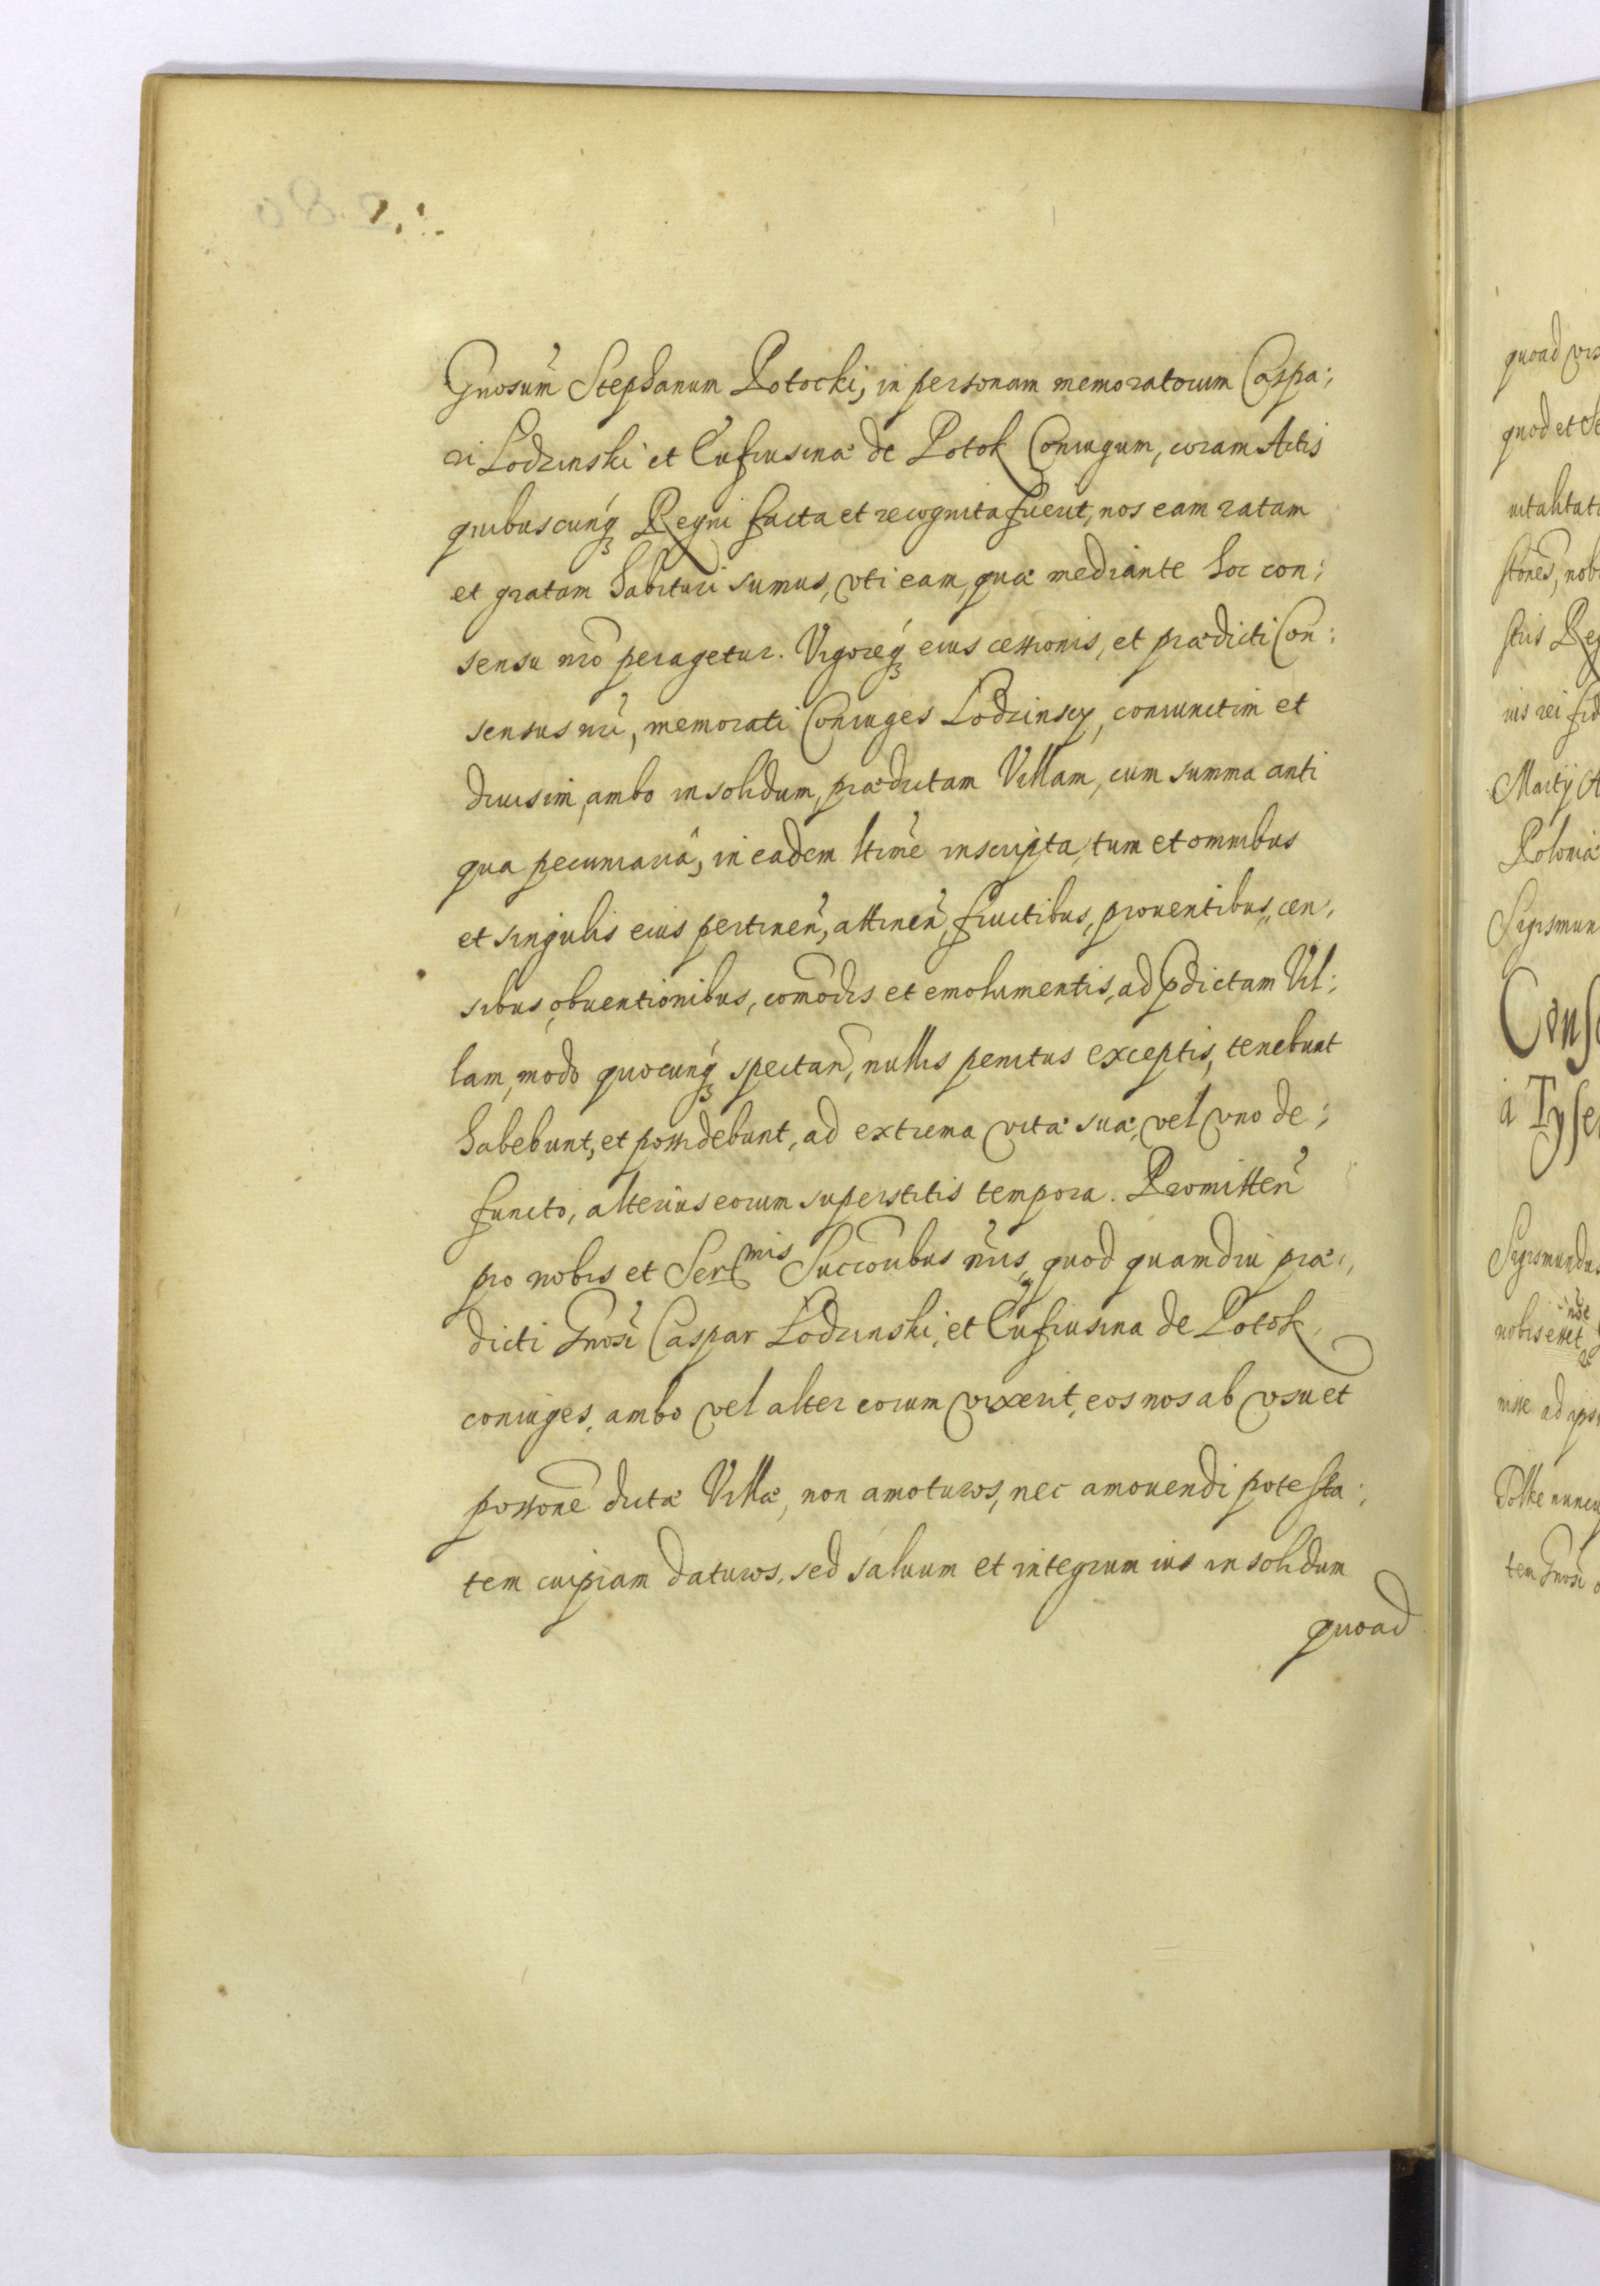 Gnosum̃ Stephanum Potocki, in personam memoratorum Caspa:
ri Lodzinski et Eufrusinæ de Potok Coniugum, coram Actis
quibuscunq́ꝫ Regni facta et recognita fuerit, nos eam ratam
et gratam habituri sumus, vti eam, quæ mediante hoc con:
sensu nr̃o peragetur. Vigoreq́ꝫ eius cessionis, et prædicti Con:
sensus nr̃i, memorati Coniuges Lodzinscy, coniunctim et
diuisim, ambo in solidum, prædictam Villam, cum summa anti
qua pecuniaria, in eadem ltime͂ inscripta, tum et omnibus
et singulis eius pertinen͂, attinen͂, fructibus, prouentibus, cen:
sibus, obuentionibus, com̃odis et emolumentis, ad p̱dictam Vil:
lam, modo quocunq́ꝫ spectan͂, nullis penitus exceptis, tenebunt
habebunt, et possidebunt, ad extrema vitæ suæ, vel vno de:
functo, alterius eorum superstitis tempora. Promitten͂
pro nobis et Ser^mis Succoribus͂ nr̃is, quod quamdiu præ:
dicti Gnosi͂ Caspar Lodzinski, et Eufrusina de Potok,
coniuges, ambo vel alter eorum vixerit, eos nos ab vsu et
possone͂ dictæ Villæ, non amoturos, nec amouendi potesta:
tem cuipiam daturos, sed saluum et integrum ius in solidum
quoad
quoad
quod et
stris
uis rei
Martij
Poloniæ
Sigismun
Cons
à Tyse
Sigismundus
nobis esset
nisse ad
tem Gnosi͂